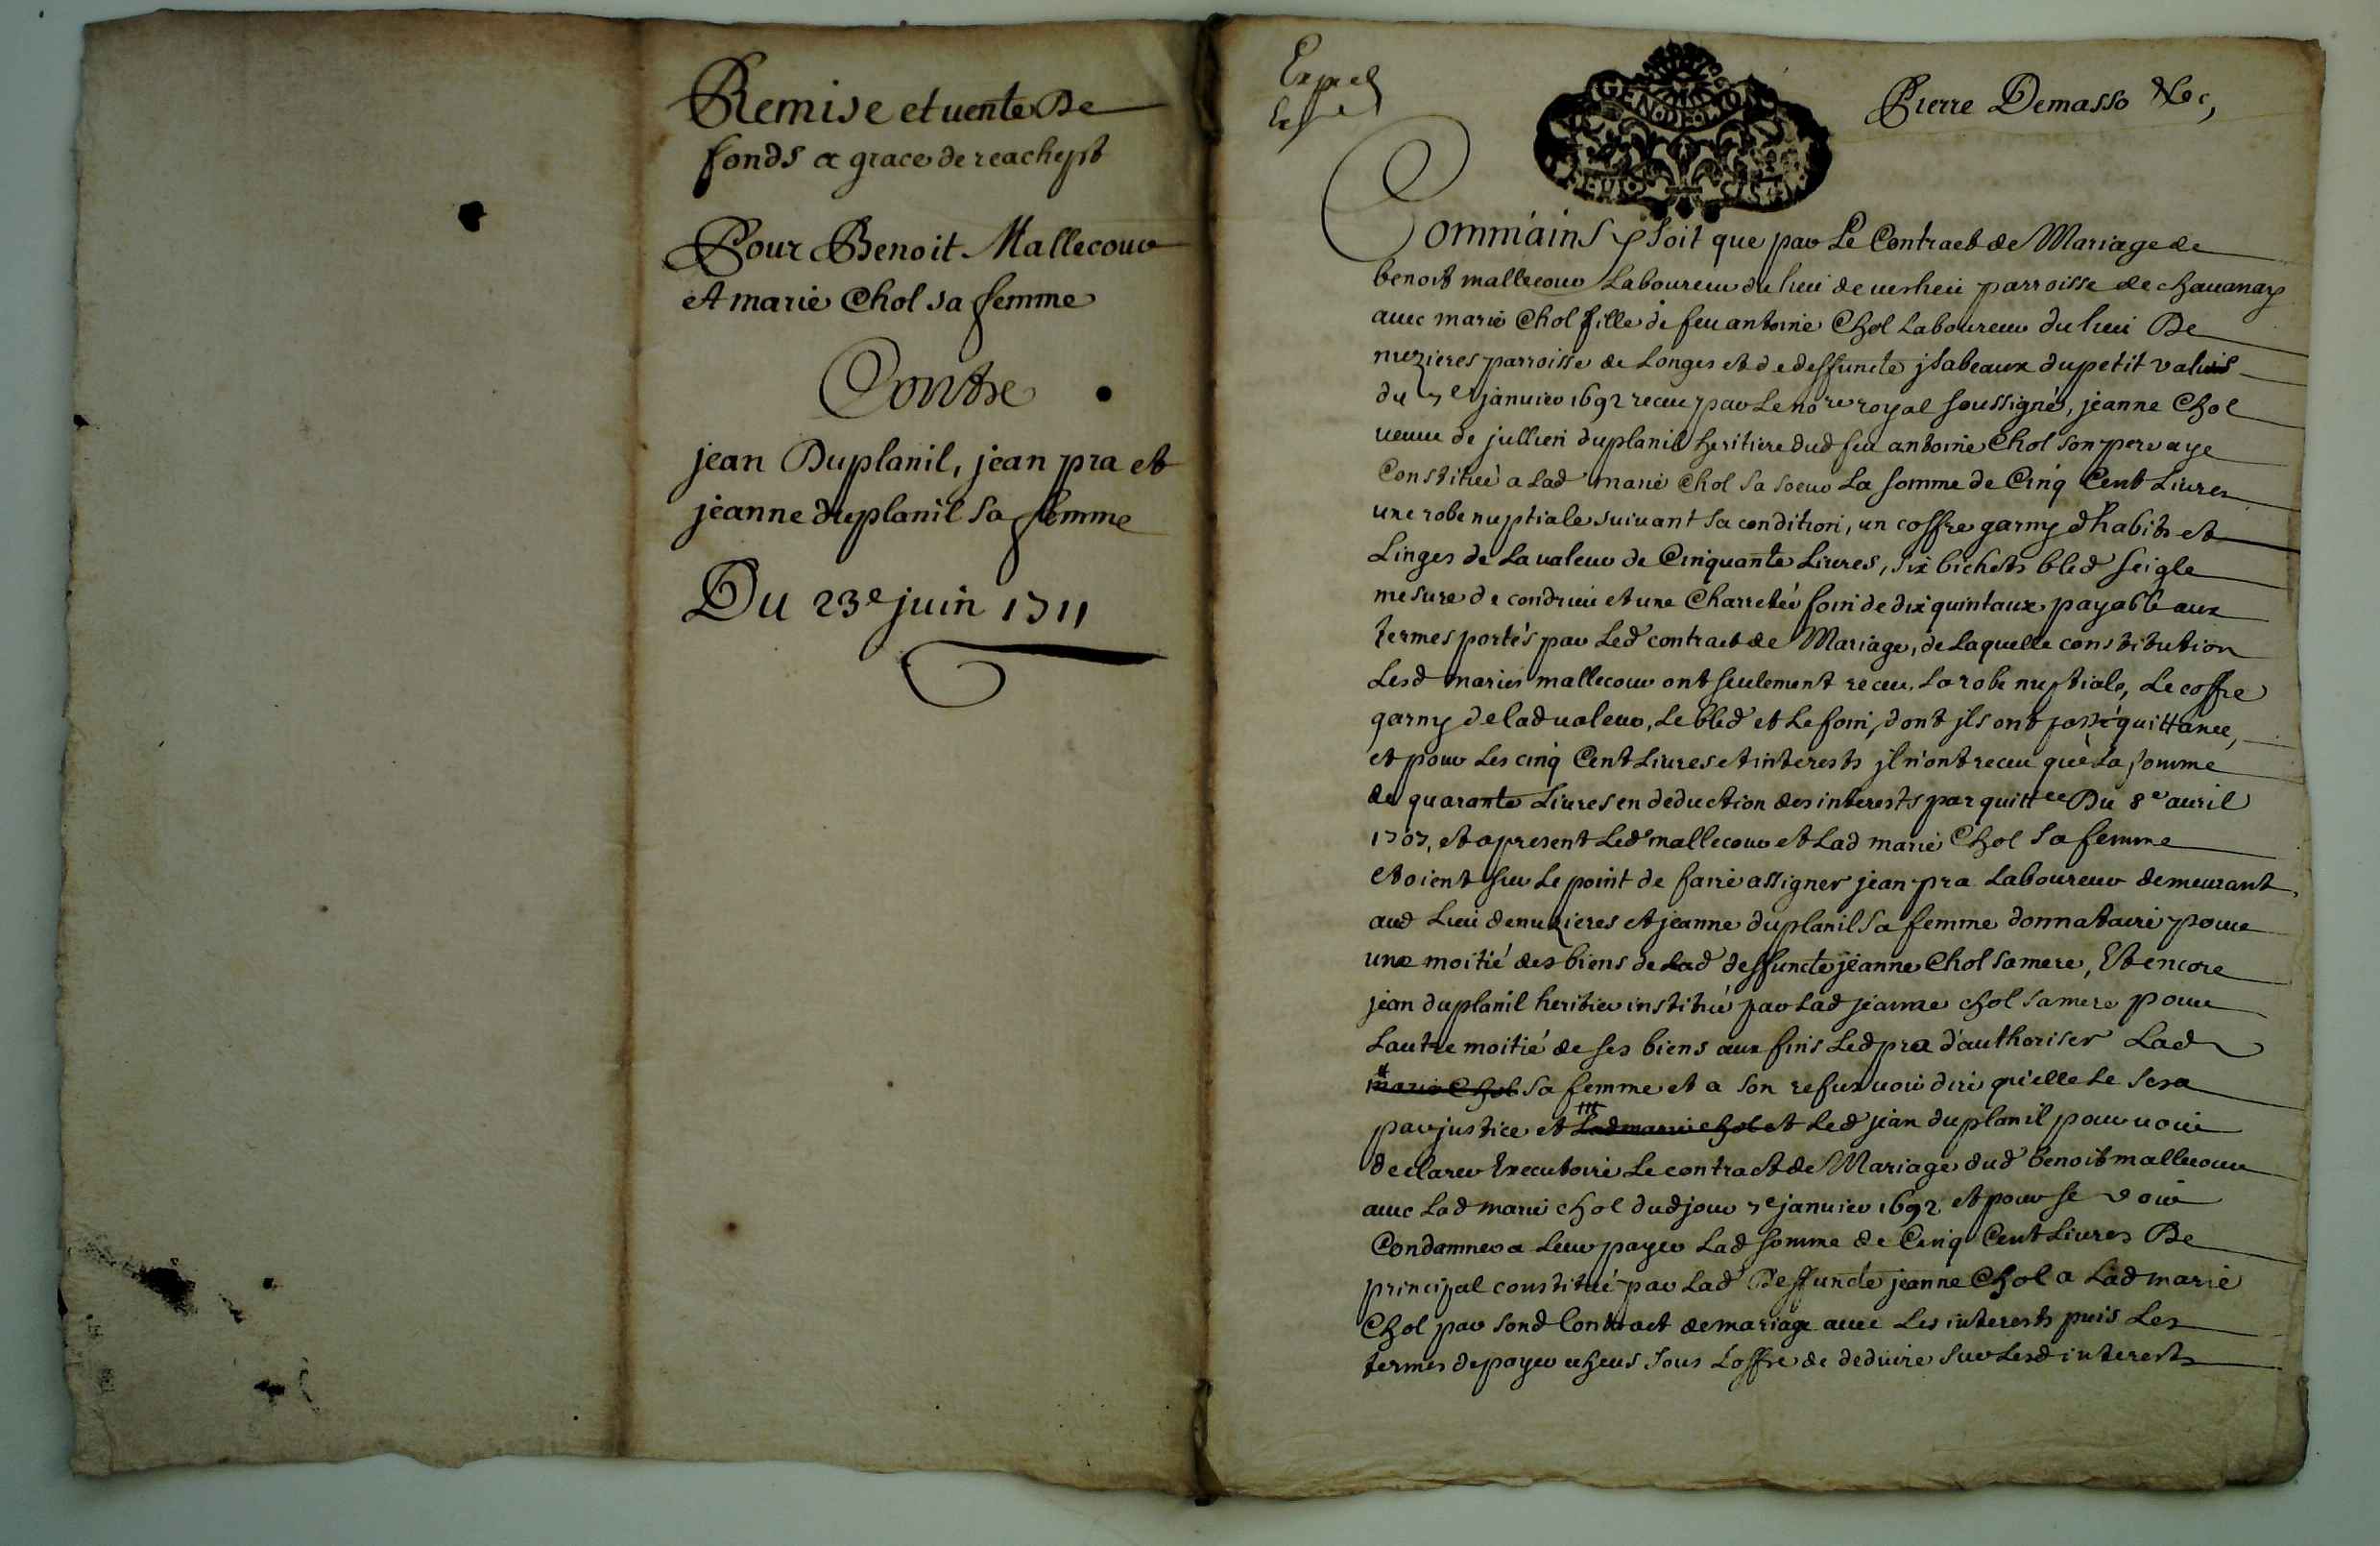 Remise et uente De
fonds a grace de reachept
Pour Benoit Mallecour
et marie Chol sa femme
Contre
jean Duplanil, jean pra et
jeanne duplanil sa femme
Du 23e juin 1711
Exped
GEN DE LYON
Pierre Demasso
Comme ainsy soit que par Le Contract de Mariage de
benoit mallecour Laboureur du lieu de uerlieu parroisse de chauanay
auec marie Chol fille de feu antoine Chol Laboureur du lieu De
nuzieres parroisse de Longes et de deffuncte jsabeaux dupetit
du 7e januier 1692 receu par Le nore royal soussigné, jeanne Chol
ueuue de jullien duplanil heritiere dud feu antoine Chol son pere aye
Constitué a Lad marie Chol sa soeur La somme de Cinq Cent Liures
une robe nuptiale suiuant sa condition, un coffre garny d'habits et
Linges de La ualeur de Cinquante Liures, six bichets bled seigle
mesure de condrieu et une Charretée foin de dix quintaux payable aux
termes portés par Led contract de Mariage, de Laquelle constitution
Lesd mariés mallecour ont seulement receu La robe nuptiale, Le coffre
garny de lad ualeur, Le bled et Le foin, dont jls ont passé quittance,
et pour Les cinq Cent Liures et interests jl n'ont receu que La somme
de quarante Liures en deduction des interests par quittce Du 8e auril
1707, et apresent Led mallecour et Lad marie Chol sa femme
etoient sur Le point de faire assigner jean pra Laboureur demeurant
aud Lieu de nuzieres et jeanne duplanil sa femme donnataire pour
une moitié des biens de Lad deffuncte jeanne Chol sa mere, Et encore
jean duplanil heritier institué par Lad jeanne chol sa mere pour
Lautre moitié de ses biens aux fins Led pra d'authoriser Lad
marie Chol sa femme et a son refus uoir dire qu'elle Le sera
par justice et Lad marie chol et Led jean duplanil pour uoir
declarer Executoire Le contract de Mariage dud benoit mallecour
auec Lad marie chol dud jour 7e januier 1692 et pour se voir
Condamner a Leur payer Lad somme de Cinq Cent Liures De
principal constitué par Lad Deffuncte jeanne Chol a Lad marie
Chol par sond Contract de mariage auec Les interests puis Les
termes de payer echeus sous L'offre de deduire sur Lesd interests